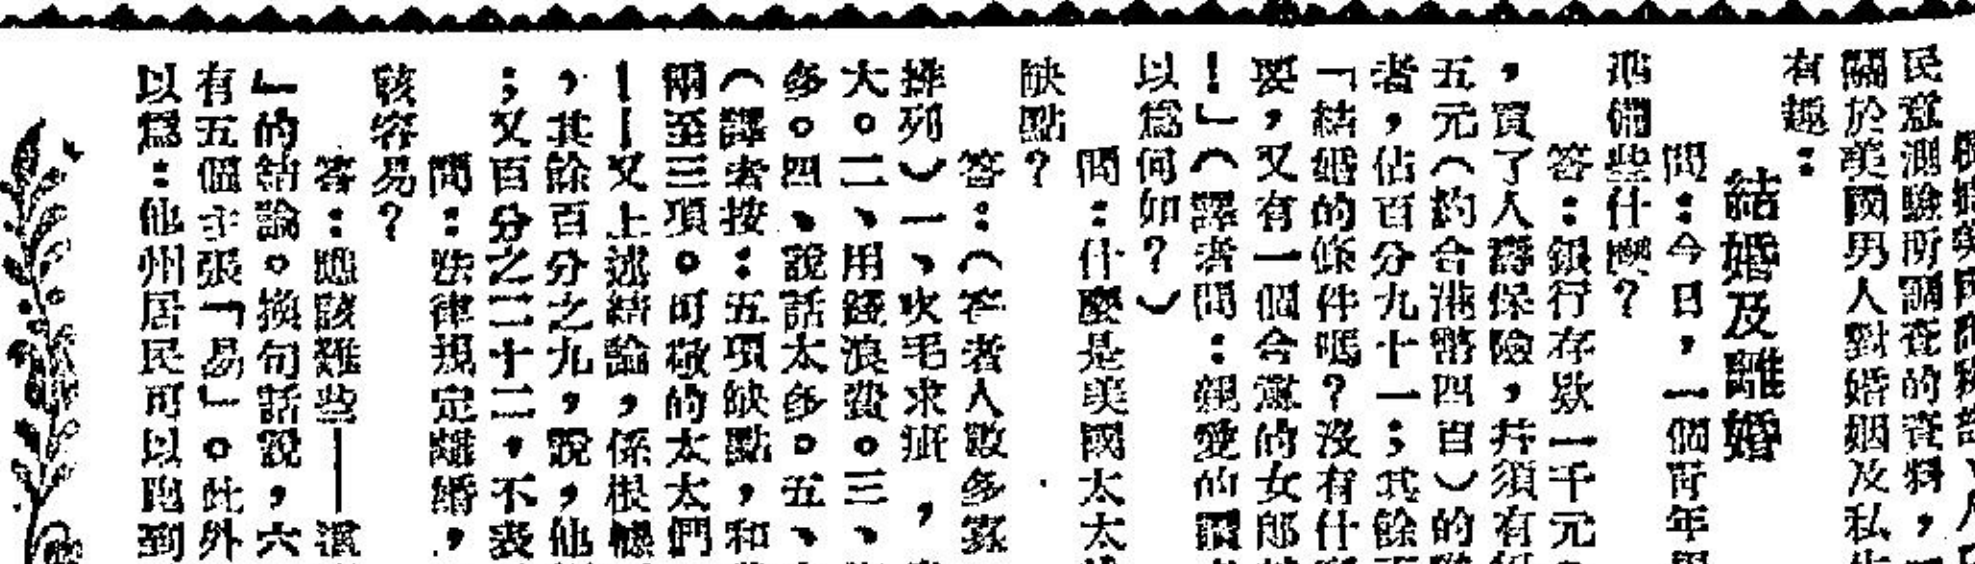 民意測驗所調查的資料，
關於美國男人對婚姻及私
有趣：
結婚及離婚
問：今日，一個青年
準備些什麼？
答：銀行存欵一千元
，買了人壽保險，幷須有
五元（約合港幣四百）的
者，佔百分九十一；其餘
「結婚的條件嗎？沒有什
要，又有一個令愛的女郎
！」（譯者問：親愛的讀
以為何如？）
問：什麼是美國太太
缺點？
答：（答者人數多寡
排列）一、吹毛求疵，
大。二、用錢浪費。三、
多。四、說話太多。五、
（譯者按：五項缺點，和
兩至三項。可敬的太太們
——又上述結論，係根據
，其餘百分之九，說，他
；又百分之二十二，不表
問：法律規定離婚，
該容易？
答：應該難些——
」的結論。換句話說，六
有五個主張「易」。此外
以為：他州居民可以跑到